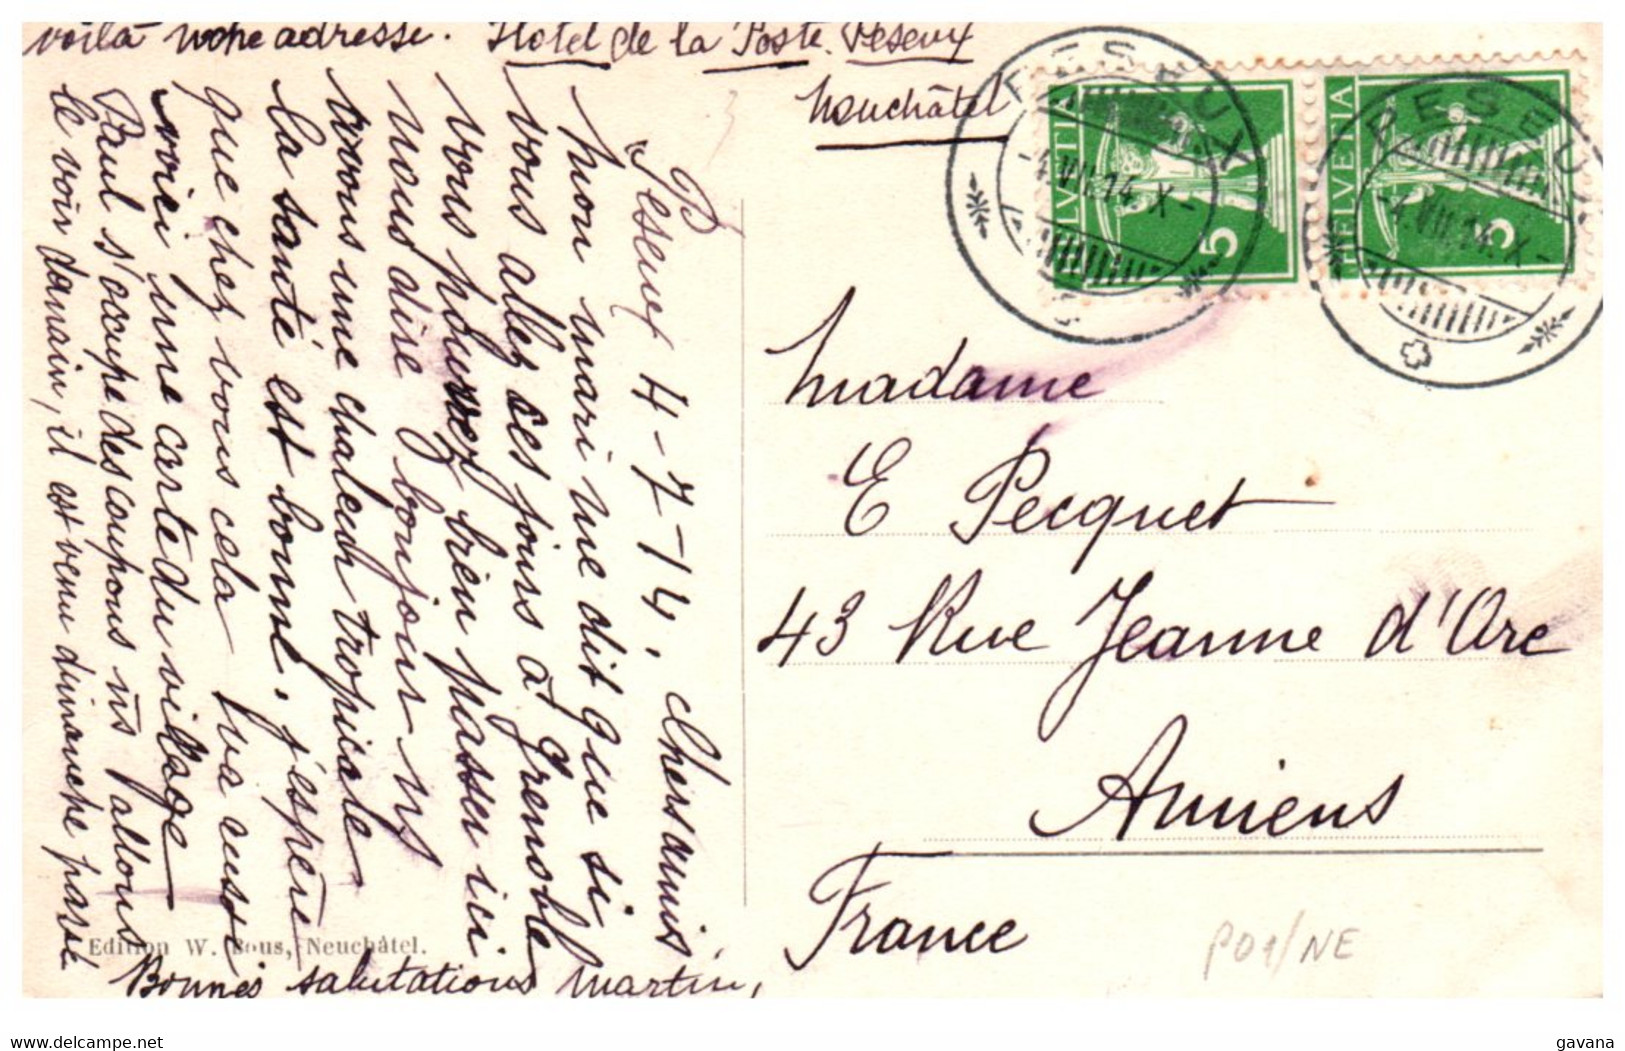 voilà notre adresse. Hotel de la Poste. Peseux
Neuchâtel
Peseux 4-7-14. Chers amis
Mon mari me dit que si
vous allez ces jours à Grenoble
vous pouvez bien passer ici
nous dire 1 bonjour ns
avons une chaleur tropicale
la santé est bonne. j'espère
que chez vous cela va aussi
voici une carte du village
Paul s'occupe des coupons ns allons
le voir demain, il est venu dimanche passé
Bonnes salutations Martin,
Edition W. Bous, Neuchâtel.
PESEUX
-4.VII.14.X-
HELVETIA
5
PESEUX
-4.VII.14.X-
HELVETIA
5
Madame
E Pecquet
43 Rue Jeanne d'Arc
Amiens
France
P01/NE
www.delcampe.net
gavana